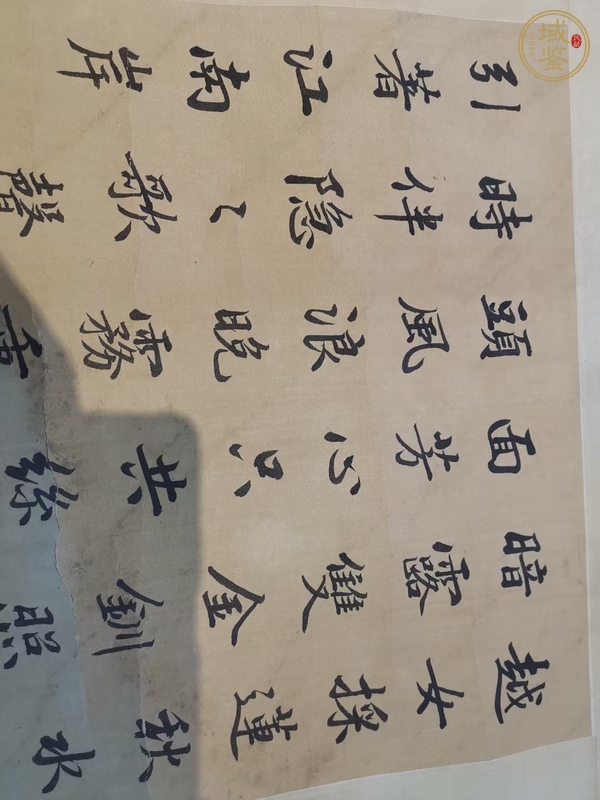 越女採蓮秋水
暗露雙金釧照
面芳心只共絲
頭風浪晚霧重
時伴隐〻歌聲
引着江南岸
域鉴